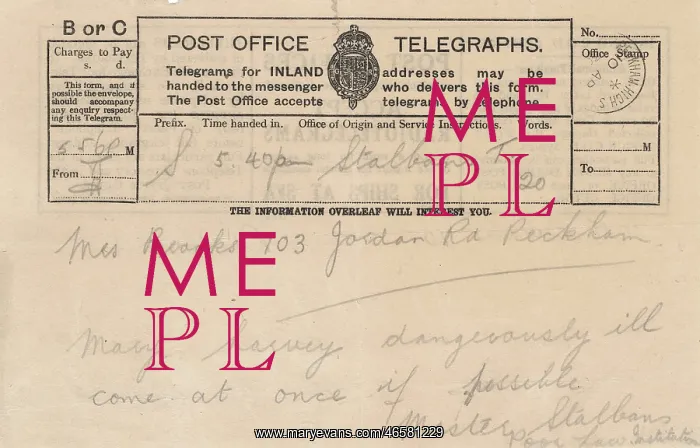 B or C
POST OFFICE TELEGRAPHS.
No.
Charges to Pay
s. d.
Office Stamp
This form, and if
possible the envelope,
should accompany
any enquiry respect-
ing this Telegram.
Telegrams for INLAND addresses may be
handed to the messenger who delivers this form.
The Post Office accepts telegrams by telephone.
Prefix. Time handed in. Office of Origin and Service Instructions. Words.
M
From
S 5.40pm Stalbans 20
M
To
THE INFORMATION OVERLEAF WILL INTEREST YOU.
Mrs Brooks 103 Jordan Rd Peckham
Mary Harvey dangerously ill
come at once if possible
Master Stalbans
Poor Law Institution
ME
PL
ME
PL
www.maryevans.com/46581229